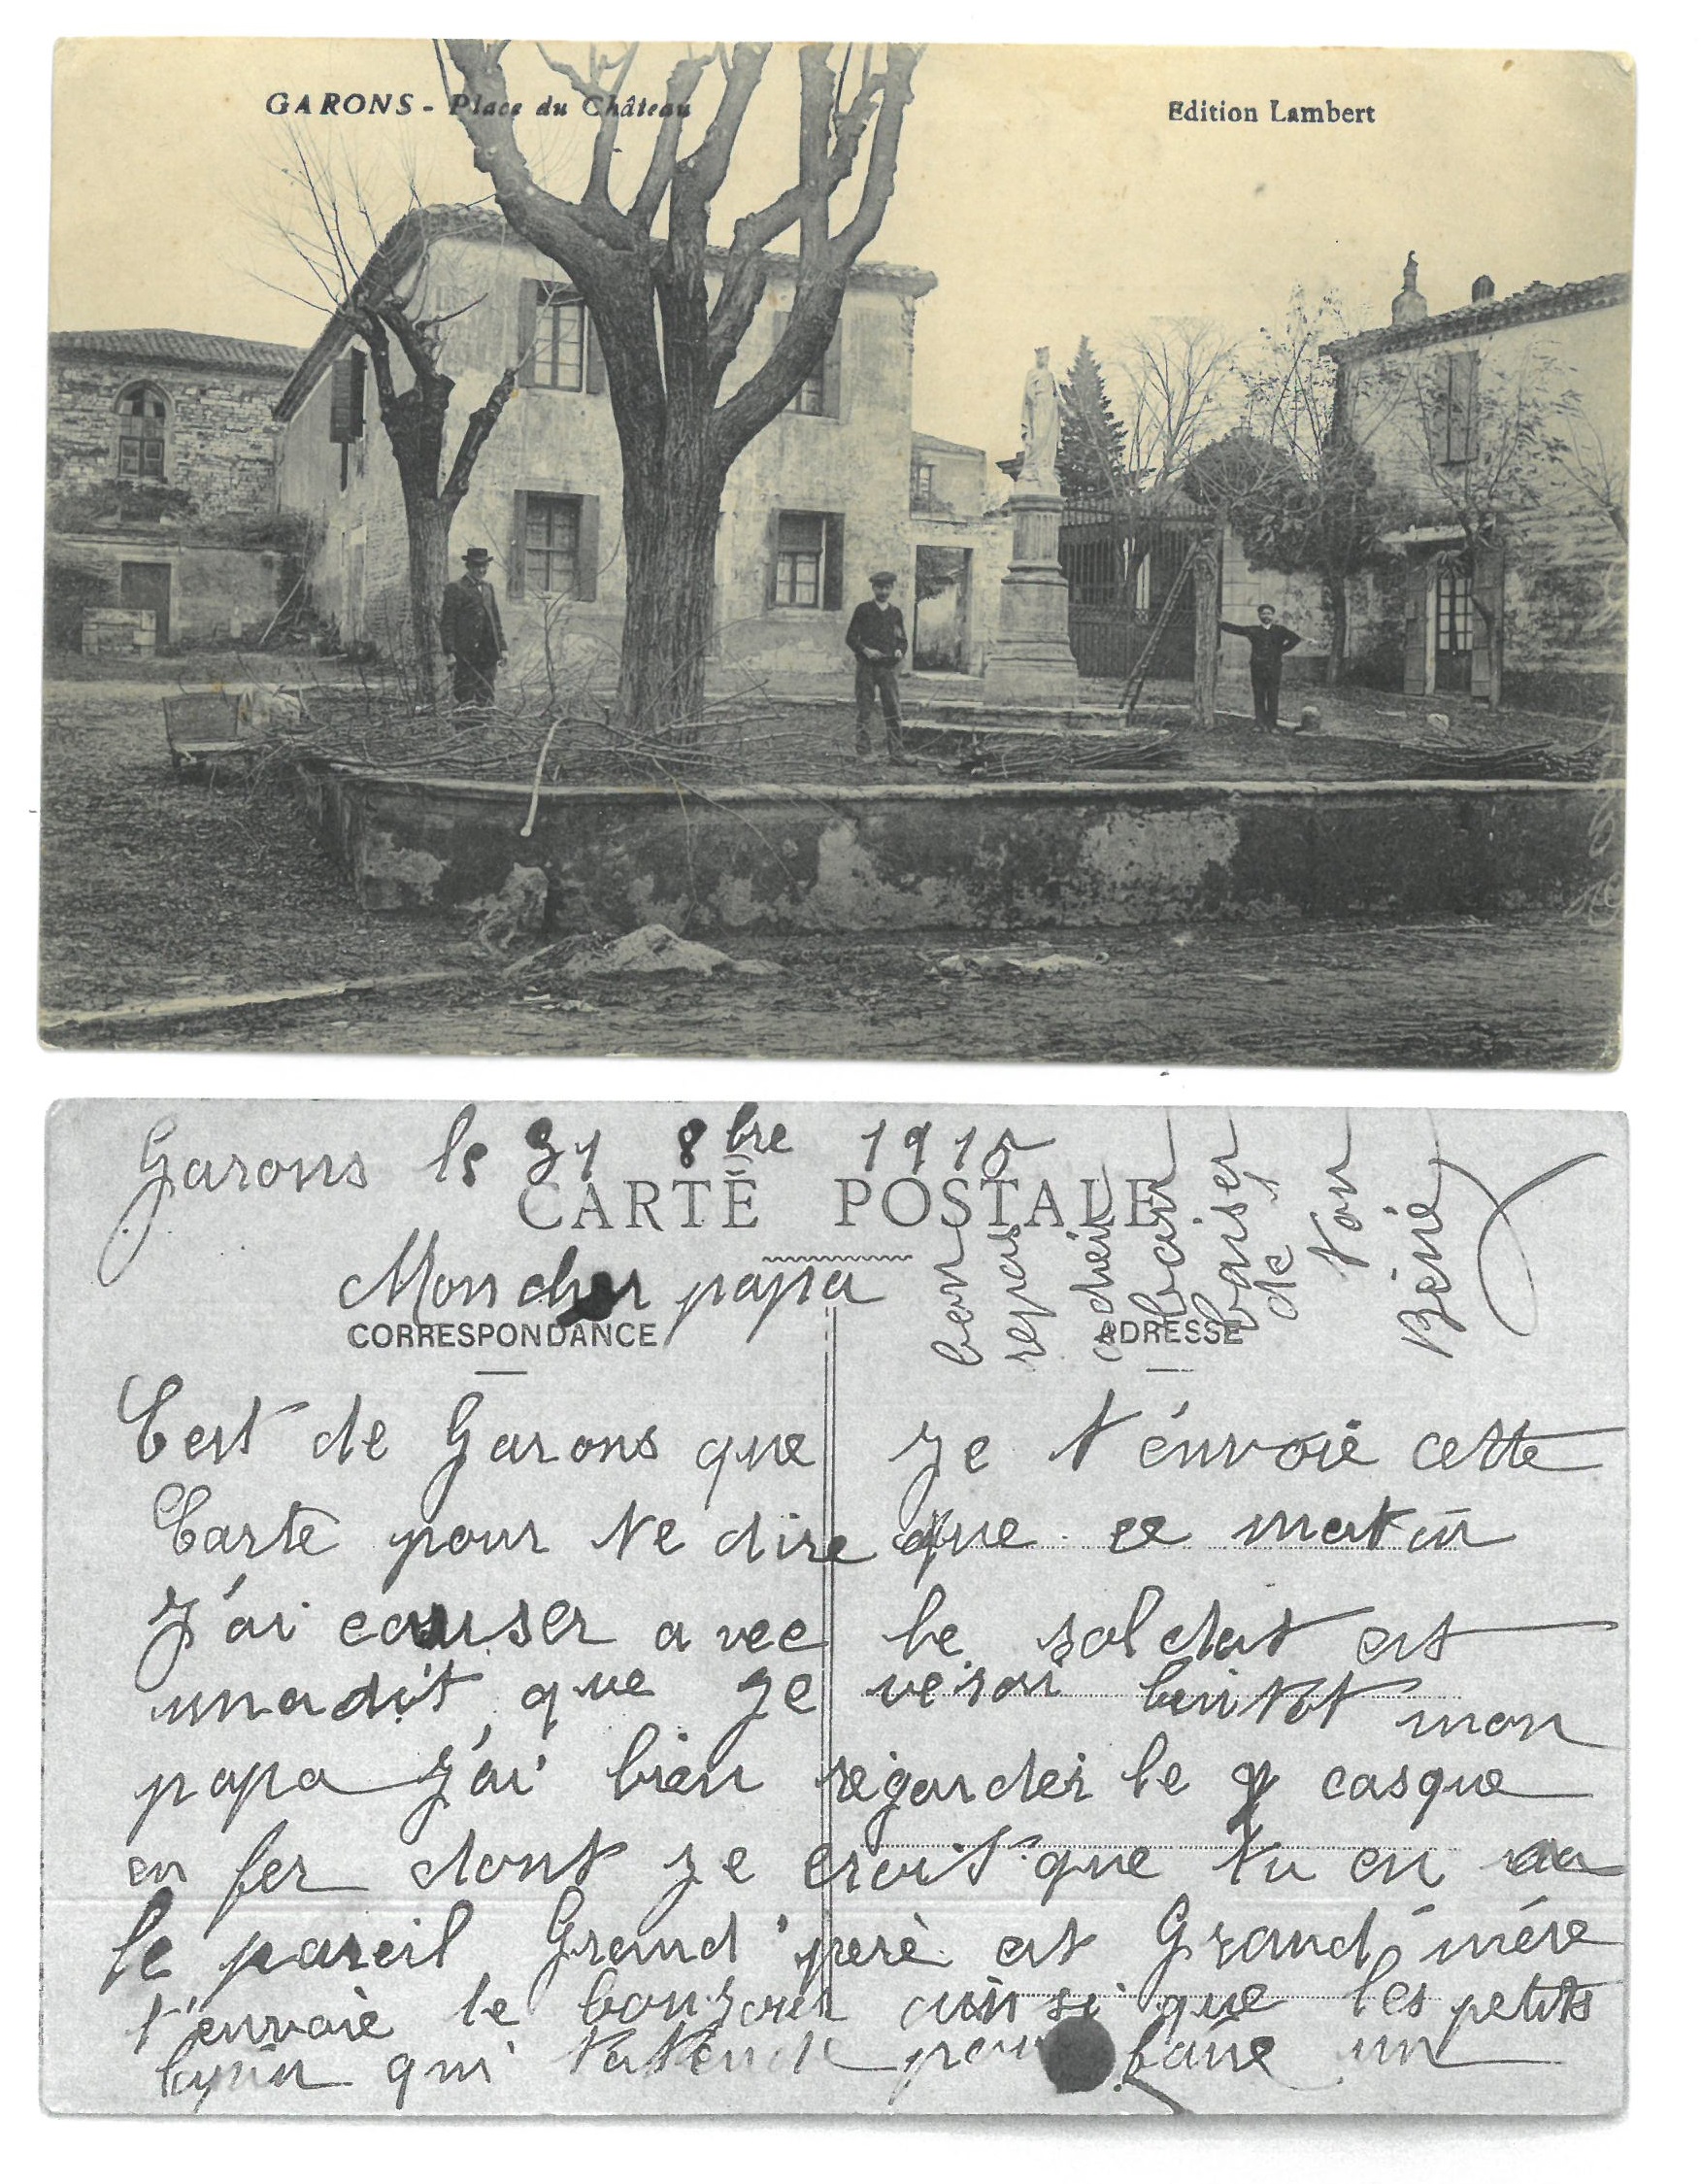 GARONS - Place du Château
Edition Lambert
Garons le 31 8bre 1915
CARTE POSTALE
Mon cher papa
CORRESPONDANCE
ADRESSE
C'est de Garons que je t'envoie cette
Carte pour te dire que ce matin
J'ai causer avec le soldat est
m a dit que je verai bintot mon
papa J'ai bien régarder le casque
en fer dont je croit que tu en a
le pareil Grand'perè et Grand'mére
t'envoie le bonjour ainsi que les petits
lapin qui t'atende pour faire un
bon
repas
cher
baiser
de
ton
Béné